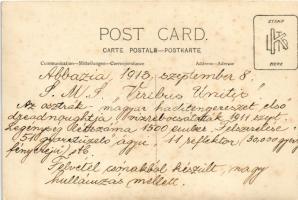 POST CARD.
CARTE POSTALE—POSTKARTE
STAMP
HERE
Communication—Mitteilungen—Correspondance
Address—Adresse
Abbazia, 1913, szeptember 8.
S. M. S. "Viribus Unitis"
Az osztrák-magyar haditengerészet első
dreadnoughtja, vízrebocsátták 1911
legénység létszáma 1500 ember. Felszerelése
51 ágyú 11 reflektor, 30,000 gyertya
fényerejű stb.
Felvétel csónakból készült, nagy
hullámzás mellett.